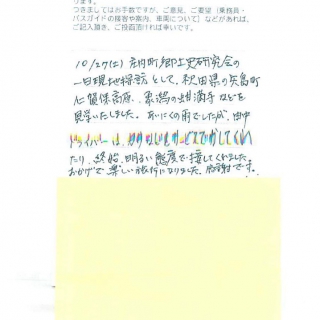 ります。
つきましてはお手数ですが、ご意見、ご要望（乗務員・
バスガイドの接客や案内、車両について）などがあれば、
ご記入頂き、ご投函頂ければ幸いです。
10/27(土) 庄内町郷土史研究会の
一日現地探訪として、秋田県の矢島町
仁賀保高原、象潟の蚶満寺などを
見学いたしました。あいにくの雨でしたが、田中
ドライバーは、
たり、終始、明るい態度で接してくれました。
おかげで楽しい旅行になりました。感謝です。